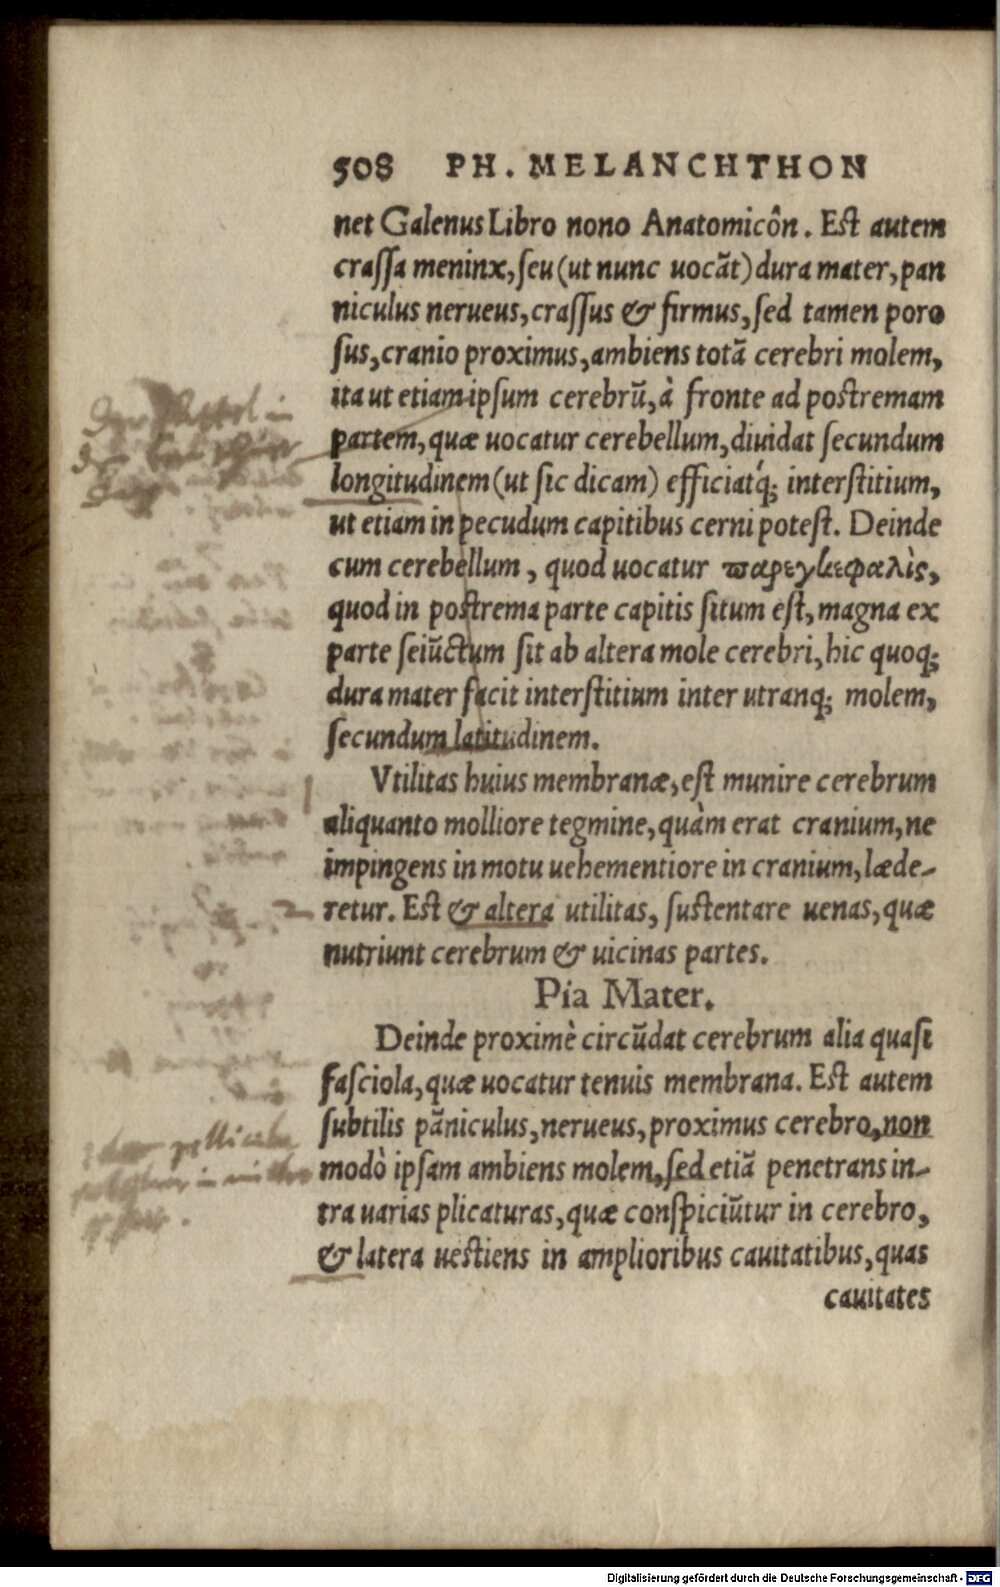 508 PH. MELANCHTHON
net Galenus Libro nono Anatomicôn. Est autem
crassa meninx, seu (ut nunc uocãt) dura mater, pan
niculus nerueus, crassus & firmus, sed tamen poro
sus, cranio proximus, ambiens totã cerebri molem,
ita ut etiam ipsum cerebrũ, à fronte ad postremam
partem, quæ uocatur cerebellum, diuidat secundum
longitudinem (ut sic dicam) efficiatq́; interstitium,
ut etiam in pecudum capitibus cerni potest. Deinde
cum cerebellum, quod uocatur παρεγκεφαλὶς,
quod in postrema parte capitis situm est, magna ex
parte seiũctum sit ab altera mole cerebri, hic quoq;
dura mater facit interstitium inter utranq; molem,
secundum latitudinem.
Vtilitas huius membranæ, est munire cerebrum
aliquanto molliore tegmine, quàm erat cranium, ne
impingens in motu uehementiore in cranium, læde-
retur. Est & altera utilitas, sustentare uenas, quæ
nutriunt cerebrum & uicinas partes.
Pia Mater.
Deinde proximè circũdat cerebrum alia quasi
fasciola, quæ uocatur tenuis membrana. Est autem
subtilis pãniculus, nerueus, proximus cerebro, non
modò ipsam ambiens molem, sed etiã penetrans in-
tra uarias plicaturas, quæ conspiciũtur in cerebro,
& latera uestiens in amplioribus cauitatibus, quas
cauitates
Digitalisierung gefördert durch die Deutsche Forschungsgemeinschaft - DFG